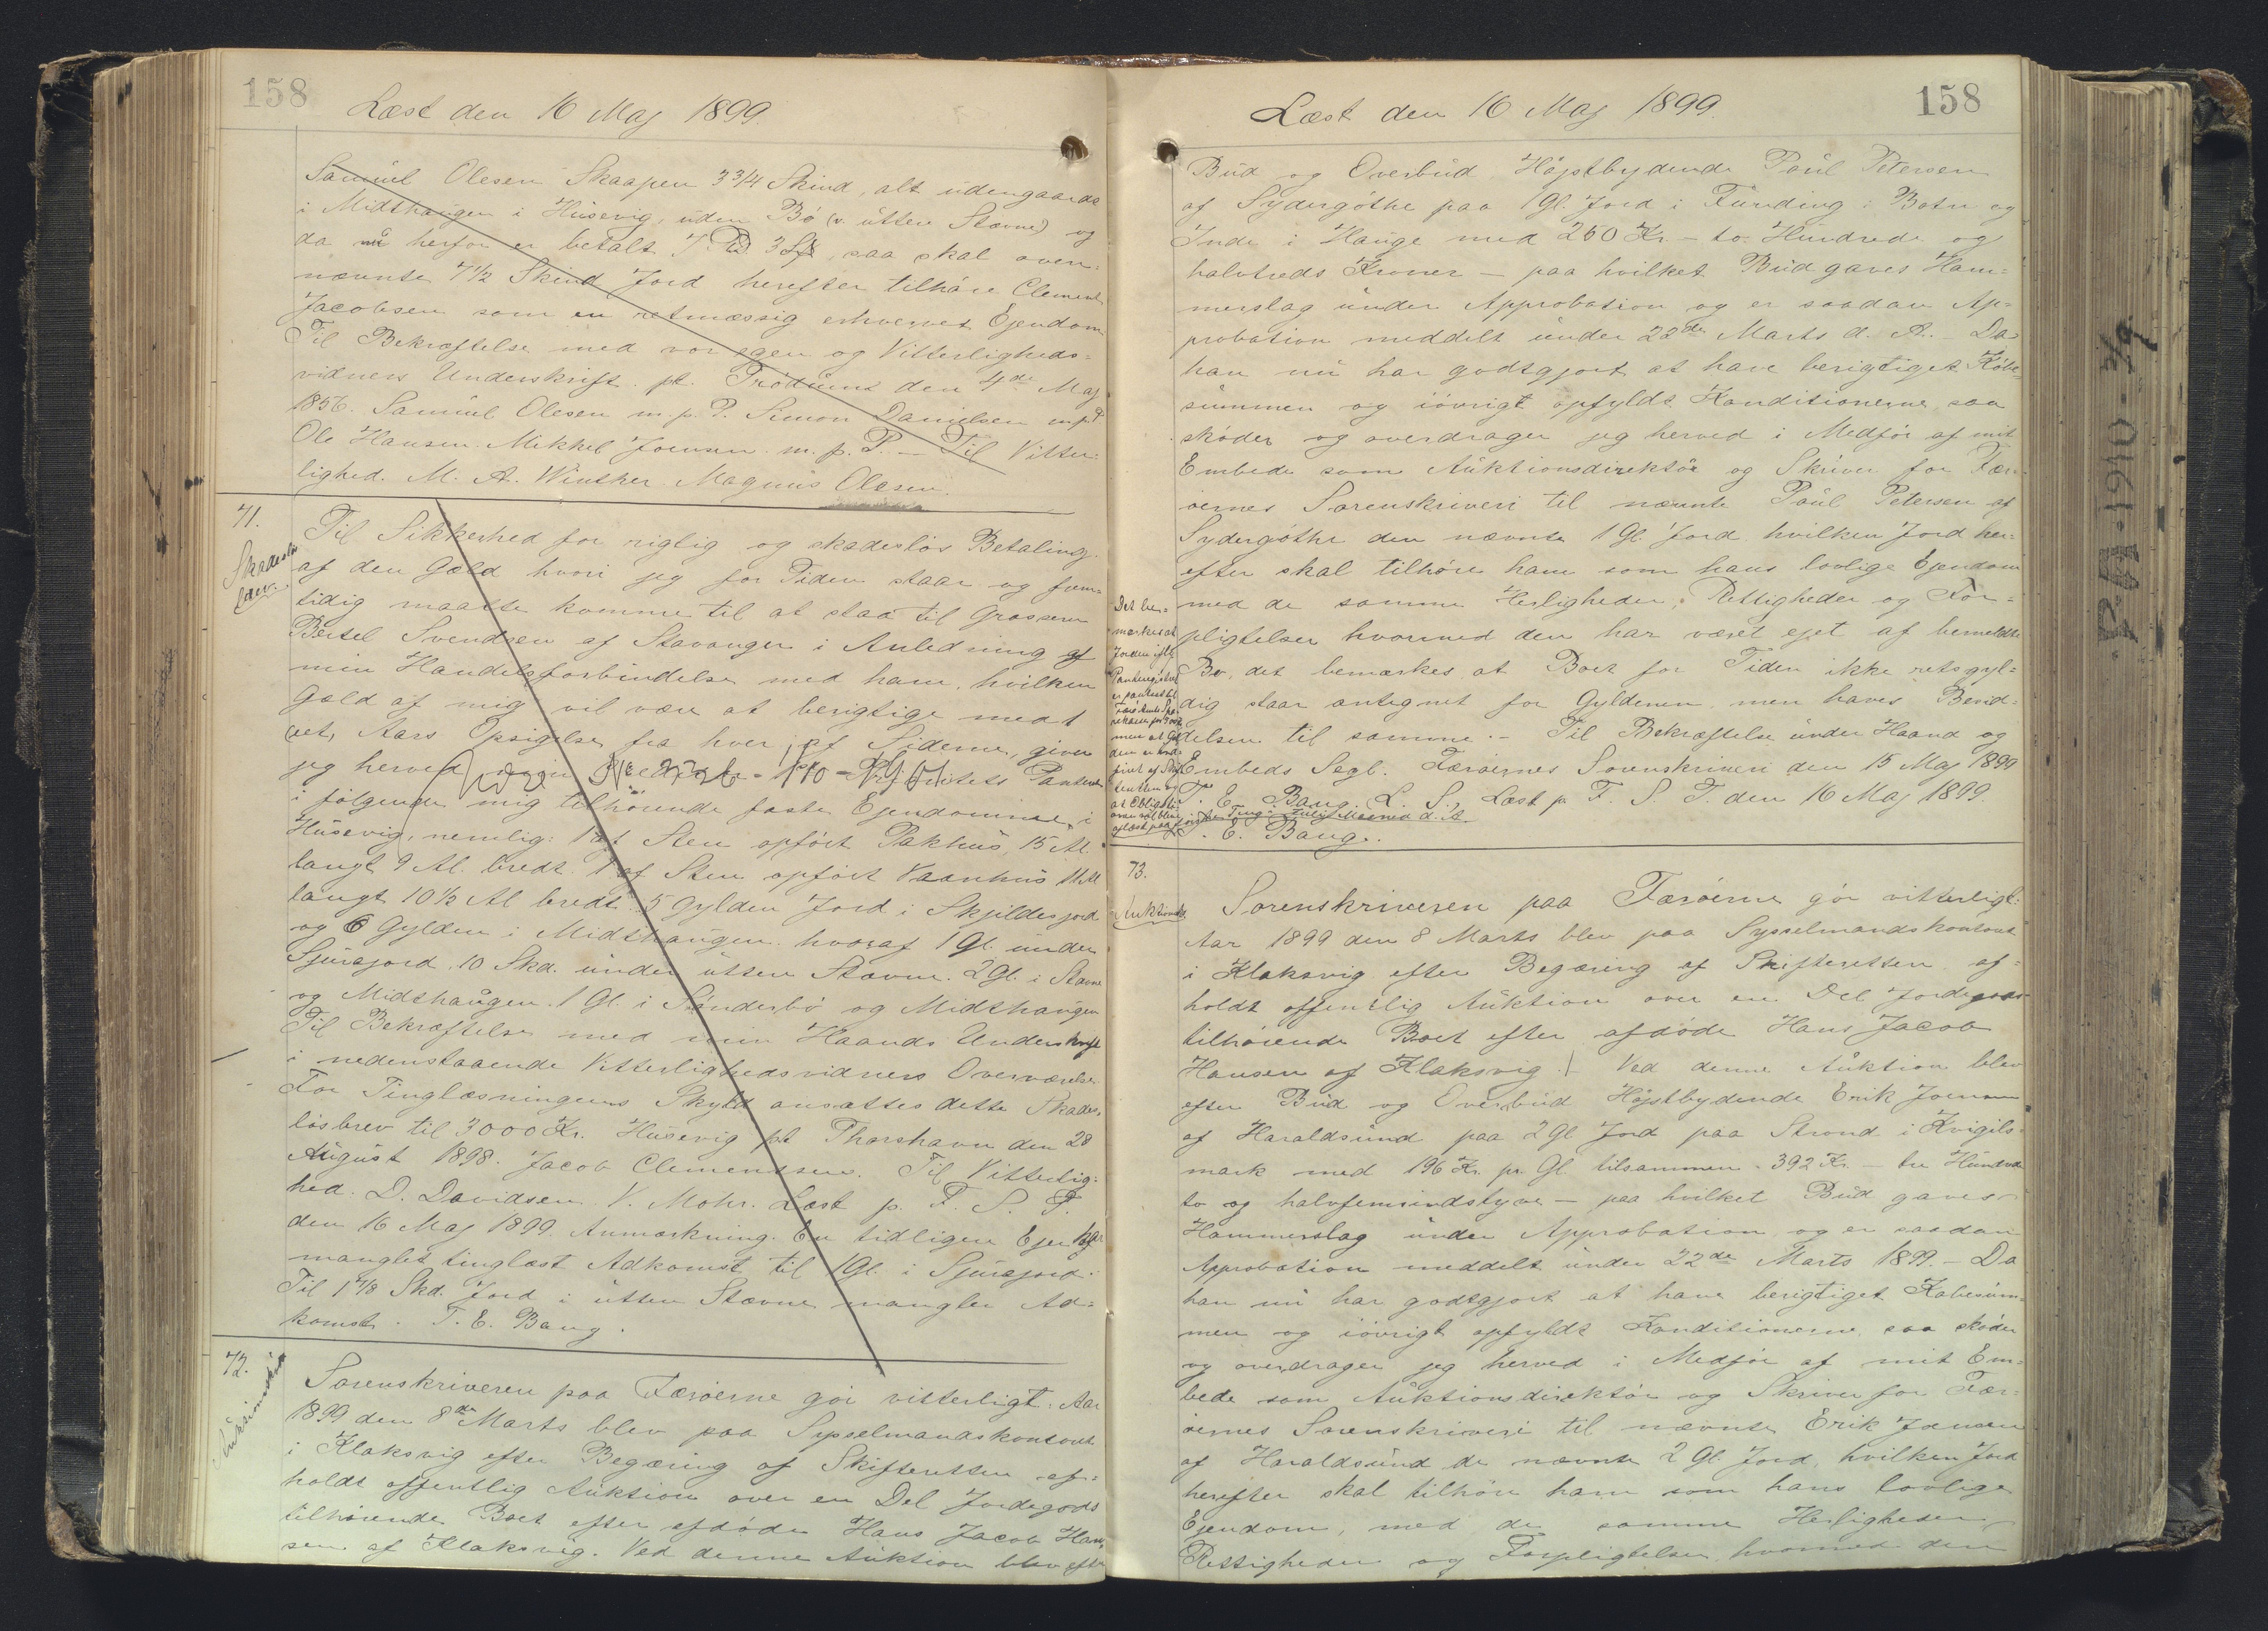 158
Læst den 16 Maj 1899.
Samuel Olesen Skaapen 3 3/4 Skind, alt udengaards
i Midthaugen i Húsevig, uden Bö (v. útten Stovne) og
da nú herfor er betalt 7. Rd 3 , saa skal oven-
nævnte 7 1/2 Skind Jord herefter tilhöre Clement
Jacobsen som en retmæssig erhvervet Ejendom
Til Bekræftelse med vor egen og Vitterligheds-
vidners Underskrift. pt. Frödúm den 4de Maj
1856. Samúel Olesen m. p. P. Simon Danielsen m.p.P
Ole Hansen. Mikkel Joensen. m. p. P. — Til Vitter-
lighed. M. A. Winther Magnús Olesen.
71.
Skadeslös
brev.
Til Sikkerhed for rigtig og skadeslös Betaling
af den Gæld hvori jeg for Tiden staar og frem-
tidig maatte komme til at staa til Grosserer
Bertel Svendsen af Stavanger i Anledning af
min Handelsforbindelse med ham, hvilken
Gæld af mig vil være at berigtige med 1
(et) Aars Opsigelse fra hver af Siderne, giver
jeg herved Prioritets Panteret
i fölgende mig tilhörende faste Ejendomme i
Húsevig, nemlig: 1 af Sten opfört Pakhús, 15 Al.
langt 9 Al. bredt. 1 af Sten opfört Vaanhús 11 Al
langt 10 1/2 Al bredt 5 Gylden Jord i Skjildesjord
og 6 Gylden i Midthaugen hvoraf 1 Gl. únder
Sjúrajord, 10 Skd. únder útten Stovne. 2 Gl. i Stovne
og Midthaúgen. 1 Gl. i Sönderbö og Midthaúgen
Til Bekræftelse med min Haands Underskrift
i nedenstaaende Vitterlighedsvidners Overværelse
For Tinglæsningens Skyld ansættes dette Skades-
lösbrev til 3000 Kr. Húsevig pt Thorshavn den 28
Aúgúst 1898. Jacob Clementsen. Til Vitterlig-
hed. D. Davidsen V. Mohr. Læst p. F. S. T.
den 16 Maj 1899. Anmærkning. En tidligere Ejer
manglet tinglæst Adkomst til 1 Gl. i Sjúrajord.
Til 1 7/8 Skd. Jord i útten Stovne mangler Ad-
komst. T. E. Bang.
72.
Aúktionsskjöde
Sorenskriveren paa Færöerne gör vitterligt. Aar
1899 den 8de Marts blev paa Sysselmandskontoret
i Klaksvig efter Begæring af Skifteretten af-
holdt offentlig Aúktion over en Del Jordegods
tilhörende Boet efter afdöde Hans Jacob Han-
sen af Klaksvig. Ved denne Aúktion blev efter
158
Læst den 16 Maj 1899.
Búd og Overbúd Höjstbydende Poúl Petersen
af Sydergöthe paa 1 Gl. Jord i Fúnding i Botn og
Inde i Haúge med 250 Kr. — to Húndrede og
halvtreds Kroner — paa hvilket Búd gaves Ham-
merslag únder Approbation og er saadan Ap-
probation meddelt únder 22de Marts d. A. — Da
han nú har godtgjort at have berigtiget Köbe-
súmmen og iövrigt opfyldt Konditionerne saa
sköder og overdrager jeg herved i Medför af mit
Embede som Aúktionsdirektör og Skriver for Fær-
öernes Sorenskriveri til nævnte Poúl Petersen af
Sydergöthe den nævnte 1 Gl. Jord hvilken Jord her-
efter skal tilhöre ham som hans lovlige Ejendom
med de samme Herligheder, Rettigheder og For-
pligtelser hvormed den har været ejet af bemeldte
Bo, det bemærkes, at Boet for Tiden ikke retsgyl-
dig staar antegnet for Gylderen, men haves Bevid-
telsen til samme. — Til Bekræftelse únder Haand og
Embeds Segl. Færöernes Sorenskriveri den 15 Maj 1899
T. E. Bang. L. S., Læst p. F. S. T. den 16 Maj 1899.
T. E. Bang.
Det be-
mærkes at
Jorden iflg
Panteregistret
er pantsat til
men at Gæl-
den er
73.
Aúktionssk
Sorenskriveren paa Færöerne gör vitterligt:
Aar 1899 den 8 Marts blev paa Sysselmandskontoret
i Klaksvig efter Begæring af Skifteretten af-
holdt offentlig Aúktion over en Del Jordegods
tilhörende Boet efter afdöde Hans Jacob
Hansen af Klaksvig. Ved denne Aúktion blev
efter Búd og Overbúd Höjstbydende Erik Joensen
af Haraldsúnd paa 2 Gl Jord paa Strond i Kvigils-
mark med 196 Kr. pr. Gl. tilsammen 392 Kr. — tre Húndrede
to og halvfemsindstyve — paa hvilket Búd gaves
Hammerslag únder Approbation og er saadan
Approbation meddelt únder 22de Marts 1899. — Da
han nú har godtgjort at have berigtiget Köbesúm-
men og iövrigt opfyldt Konditionerne saa sköder
og overdrager jeg herved i Medför af mit Em-
bede som Aúktionsdirektör og Skriver for Fær-
öernes Sorenskriveri til nævnte Erik Joensen
af Haraldsúnd de nævnte 2 Gl. Jord, hvilken Jord
herefter skal tilhöre ham som hans lovlige
Ejendom, med de samme Herligheder,
Rettigheder og Forpligtelser hvormed den